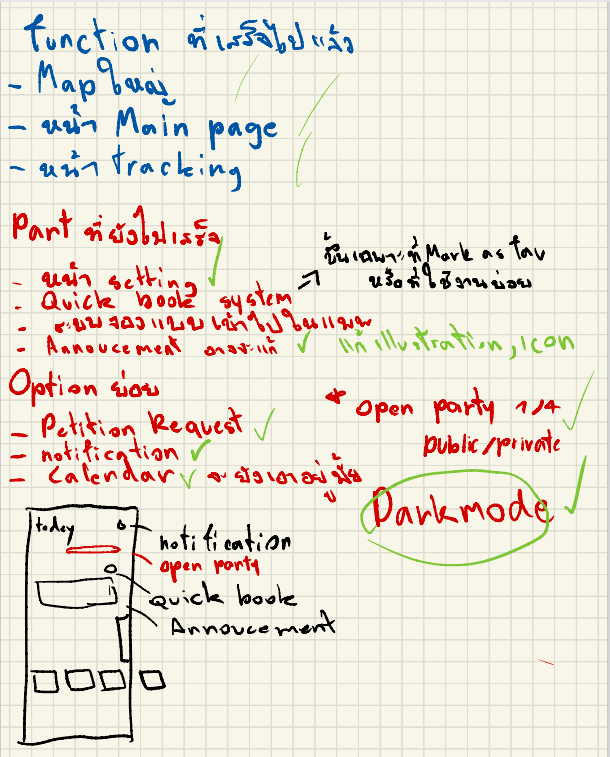 function ที่เสร็จไปแล้ว
- Map ใหญ่
- หน้า Main page
- หน้า tracking
Part ที่ยังไม่เสร็จ
- หน้า setting
- Quick book system
- ระบบจองแบบเข้าไปในแมพ
- Annoucement อาจจะแก้
ขึ้นเฉพาะที่ Mark as fav
หรือที่ใช้งานบ่อย
แก้ illustration, icon
Option ย่อย
- Petition Request
- notification
- Calendar จะยังเอาอยู่มั้ย
open party 1/4
public/private
Darkmode
today
notification
open party
Quick book
Annoucement